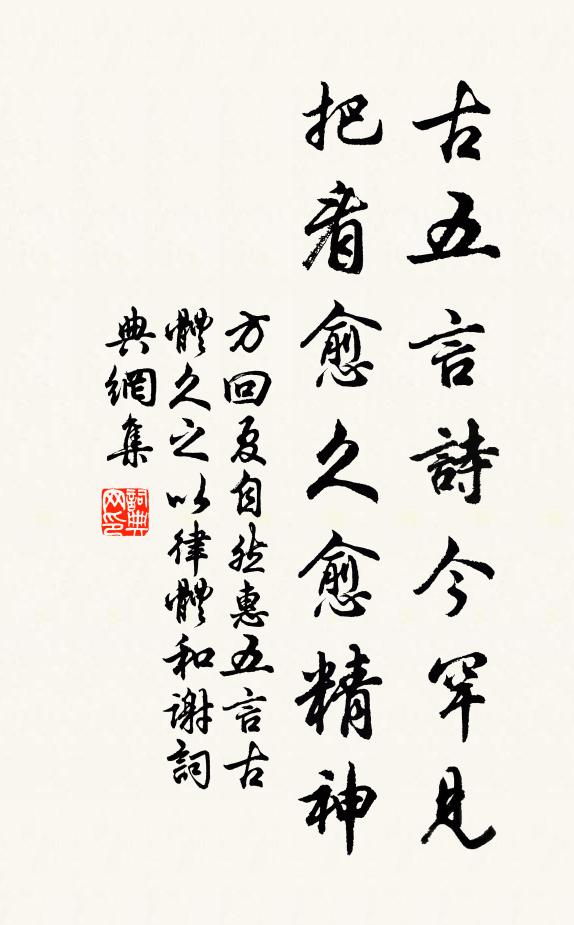 古五言詩今罕見
把看愈久愈精神
方回夏自然惠五言古
體久之以律體和謝詞
典網集
詞典网印